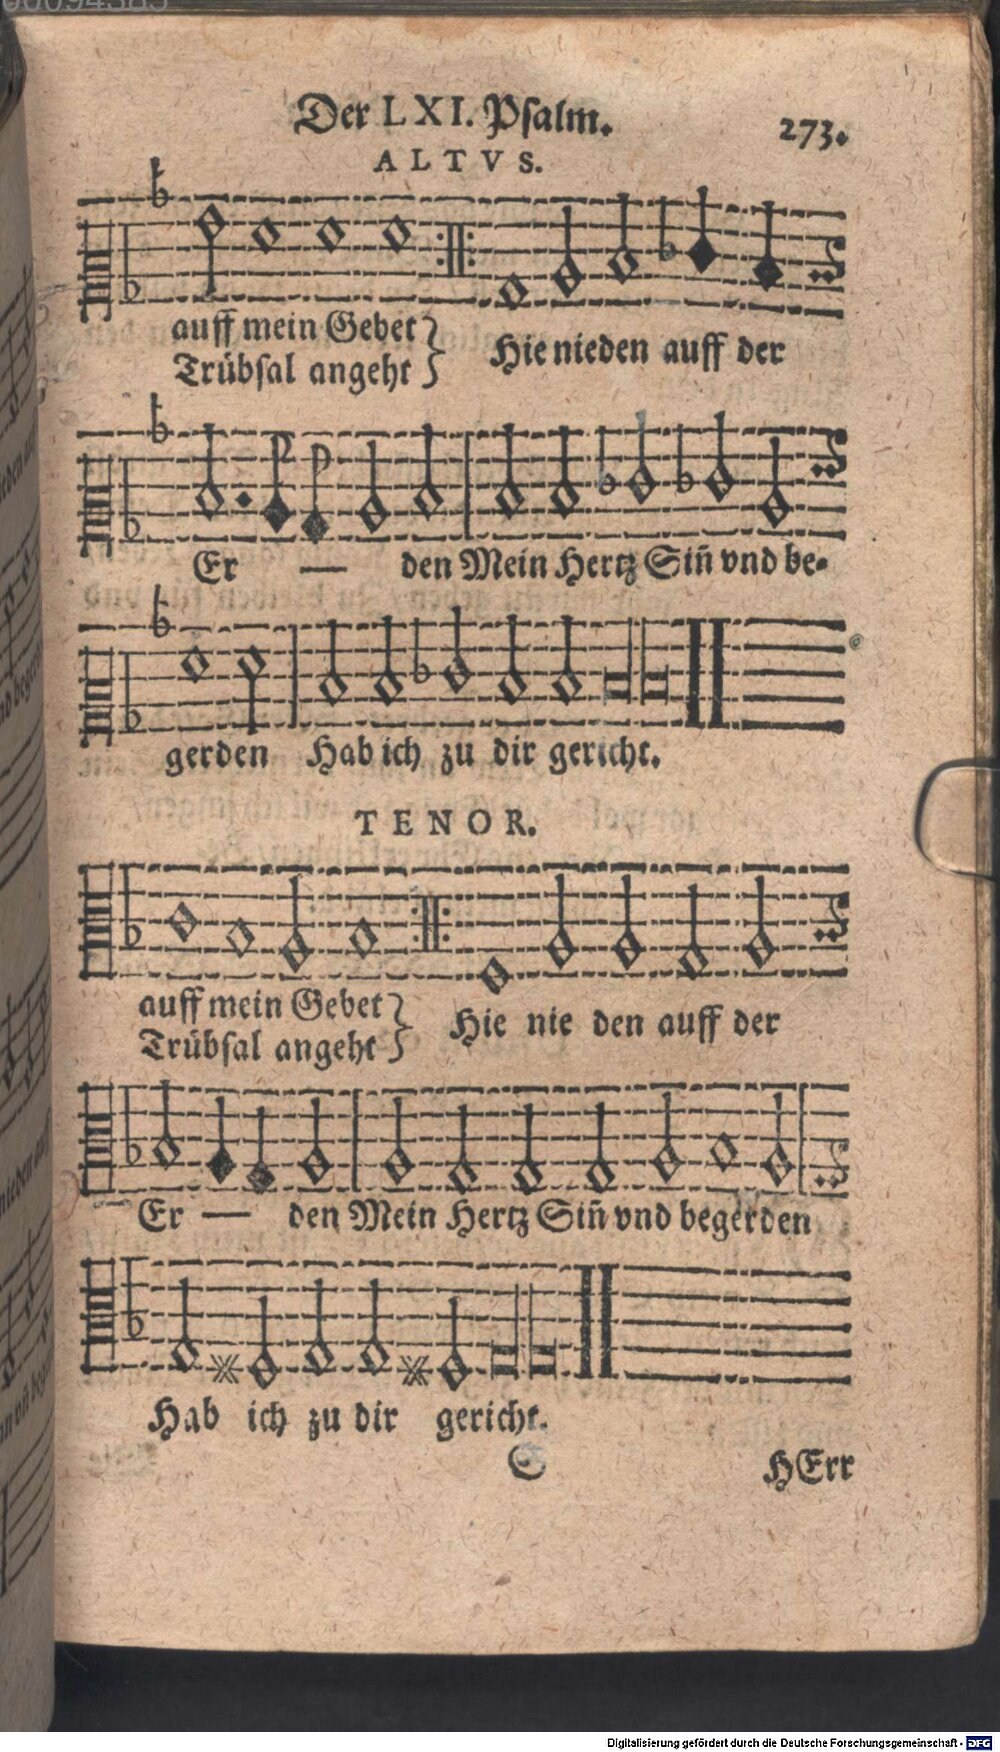 00094385
Der LXI. Psalm. 273.
ALTVS.
auff mein Gebet } Hie nieden auff der
Trübsal angeht }
Er — den Mein Hertz Sin̄ vnd be-
gerden Hab ich zu dir gericht.
TENOR.
auff mein Gebet } Hie nie den auff der
Trübsal angeht }
Er — den Mein Hertz Sin̄ vnd begerden
Hab ich zu dir gericht.
S HErr
Digitalisierung gefördert durch die Deutsche Forschungsgemeinschaft - DFG